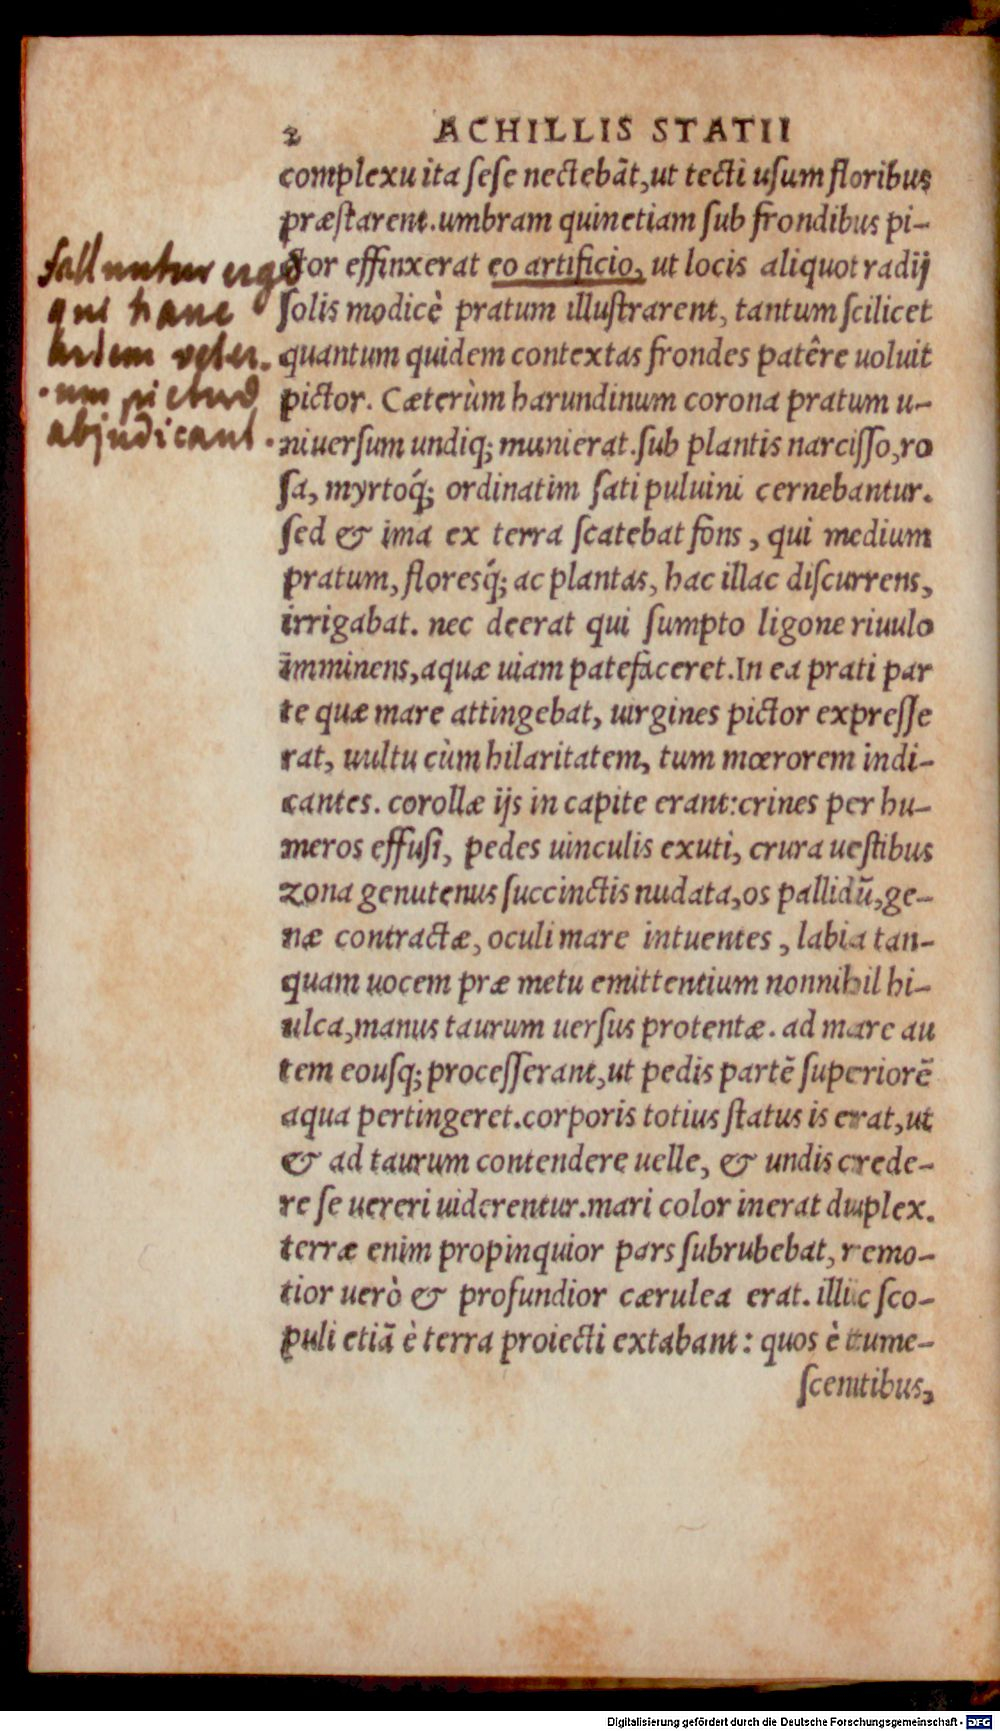 2 ACHILLIS STATII
complexu ita sese nectebãt, ut tecti usum floribus
præstarent. umbram quinetiam sub frondibus pi-
ctor effinxerat eo artificio, ut locis aliquot radij
solis modicè pratum illustrarent, tantum scilicet
quantum quidem contextas frondes patêre uoluit
pictor. Cæterùm harundinum corona pratum u-
niuersum undiq; munierat. sub plantis narcisso, ro
sa, myrtoq́; ordinatim sati puluini cernebantur.
sed & ima ex terra scatebat fons, qui medium
pratum, floresq́; ac plantas, hac illac discurrens,
irrigabat. nec deerat qui sumpto ligone riuulo
imminens, aquæ uiam patefaceret. In ea prati par
te quæ mare attingebat, uirgines pictor expresse
rat, uultu cùm hilaritatem, tum mœrorem indi-
cantes. corollæ ijs in capite erant: crines per hu-
meros effusi, pedes uinculis exuti, crura uestibus
zona genutenus succinctis nudata, os pallidũ, ge-
næ contractæ, oculi mare intuentes, labia tan-
quam uocem præ metu emittentium nonnihil hi-
ulca, manus taurum uersus protentæ. ad mare au
tem eousq; processerant, ut pedis partẽ superiorẽ
aqua pertingeret. corporis totius status is erat, ut
& ad taurum contendere uelle, & undis crede-
re se uereri uiderentur. mari color inerat duplex.
terræ enim propinquior pars subrubebat, remo-
tior uerò & profundior cærulea erat. illic sco-
puli etiã è terra proiecti extabant: quos è tume-
scentibus,
falluntur ergo
qui hanc
artem veter.
um pictur
abjudicant.
Digitalisierung gefördert durch die Deutsche Forschungsgemeinschaft - DFG